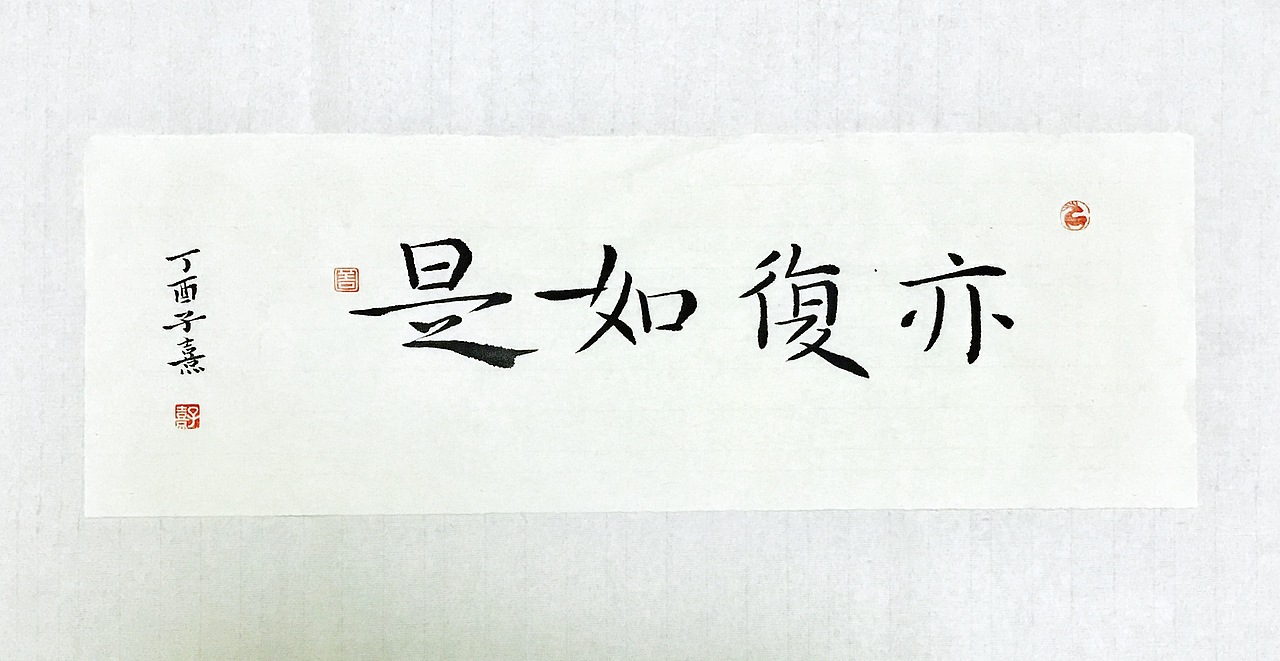 亦復如是
丁酉子熹